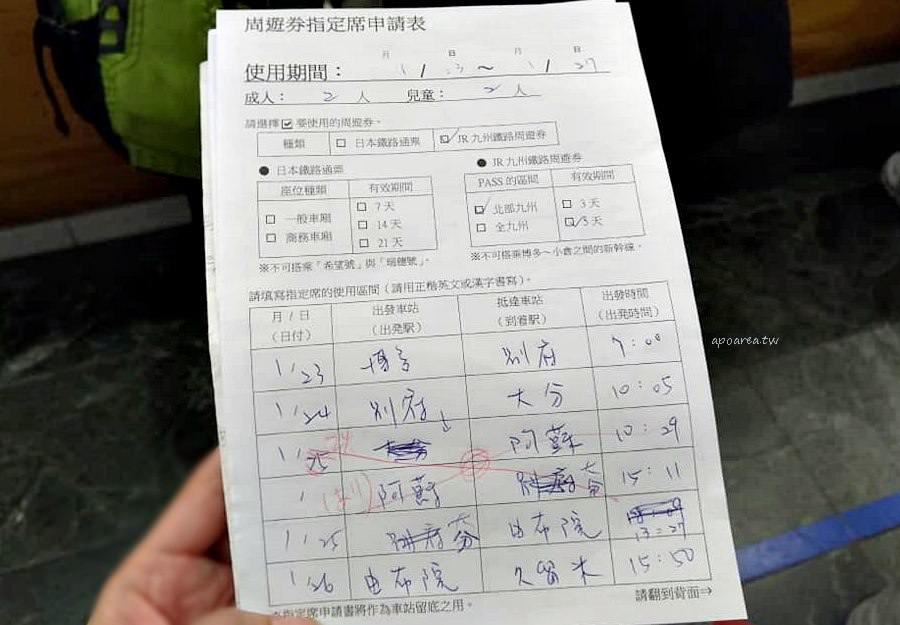 周遊券指定席申請表
月 日 月 日
使用期間： 1 / 23 ~ 1 / 27
成人： 2 人 兒童： 2 人
請選擇☑要使用的周遊券。
種類 □ 日本鐵路通票 ☑ JR 九州鐵路周遊券
● 日本鐵路通票
座位種類 有效期間
□ 一般車廂 □ 7 天
□ 商務車廂 □ 14 天
□ 21 天
※不可搭乘「希望號」與「瑞穗號」。
● JR 九州鐵路周遊券
PASS 的區間 有效期間
☑ 北部九州 □ 3 天
□ 全九州 ☑ 5 天
※不可搭乘博多～小倉之間的新幹線。
請填寫指定席的使用區間（請用正楷英文或漢字書寫）。
月 / 日 出發車站 抵達車站 出發時間
（日付） （出発駅） （到着駅） （出発時間）
1/23 博多 別府 7：00
1/24 別府 大分 10：05
1/25 24 阿蘇 10：29
1 阿蘇 大分 15：11
1/25 大分 由布院 13：27
1/26 由布院 久留米 15：50
※指定席申請書將作為車站留底之用。
請翻到背面⇒
apoarea.tw